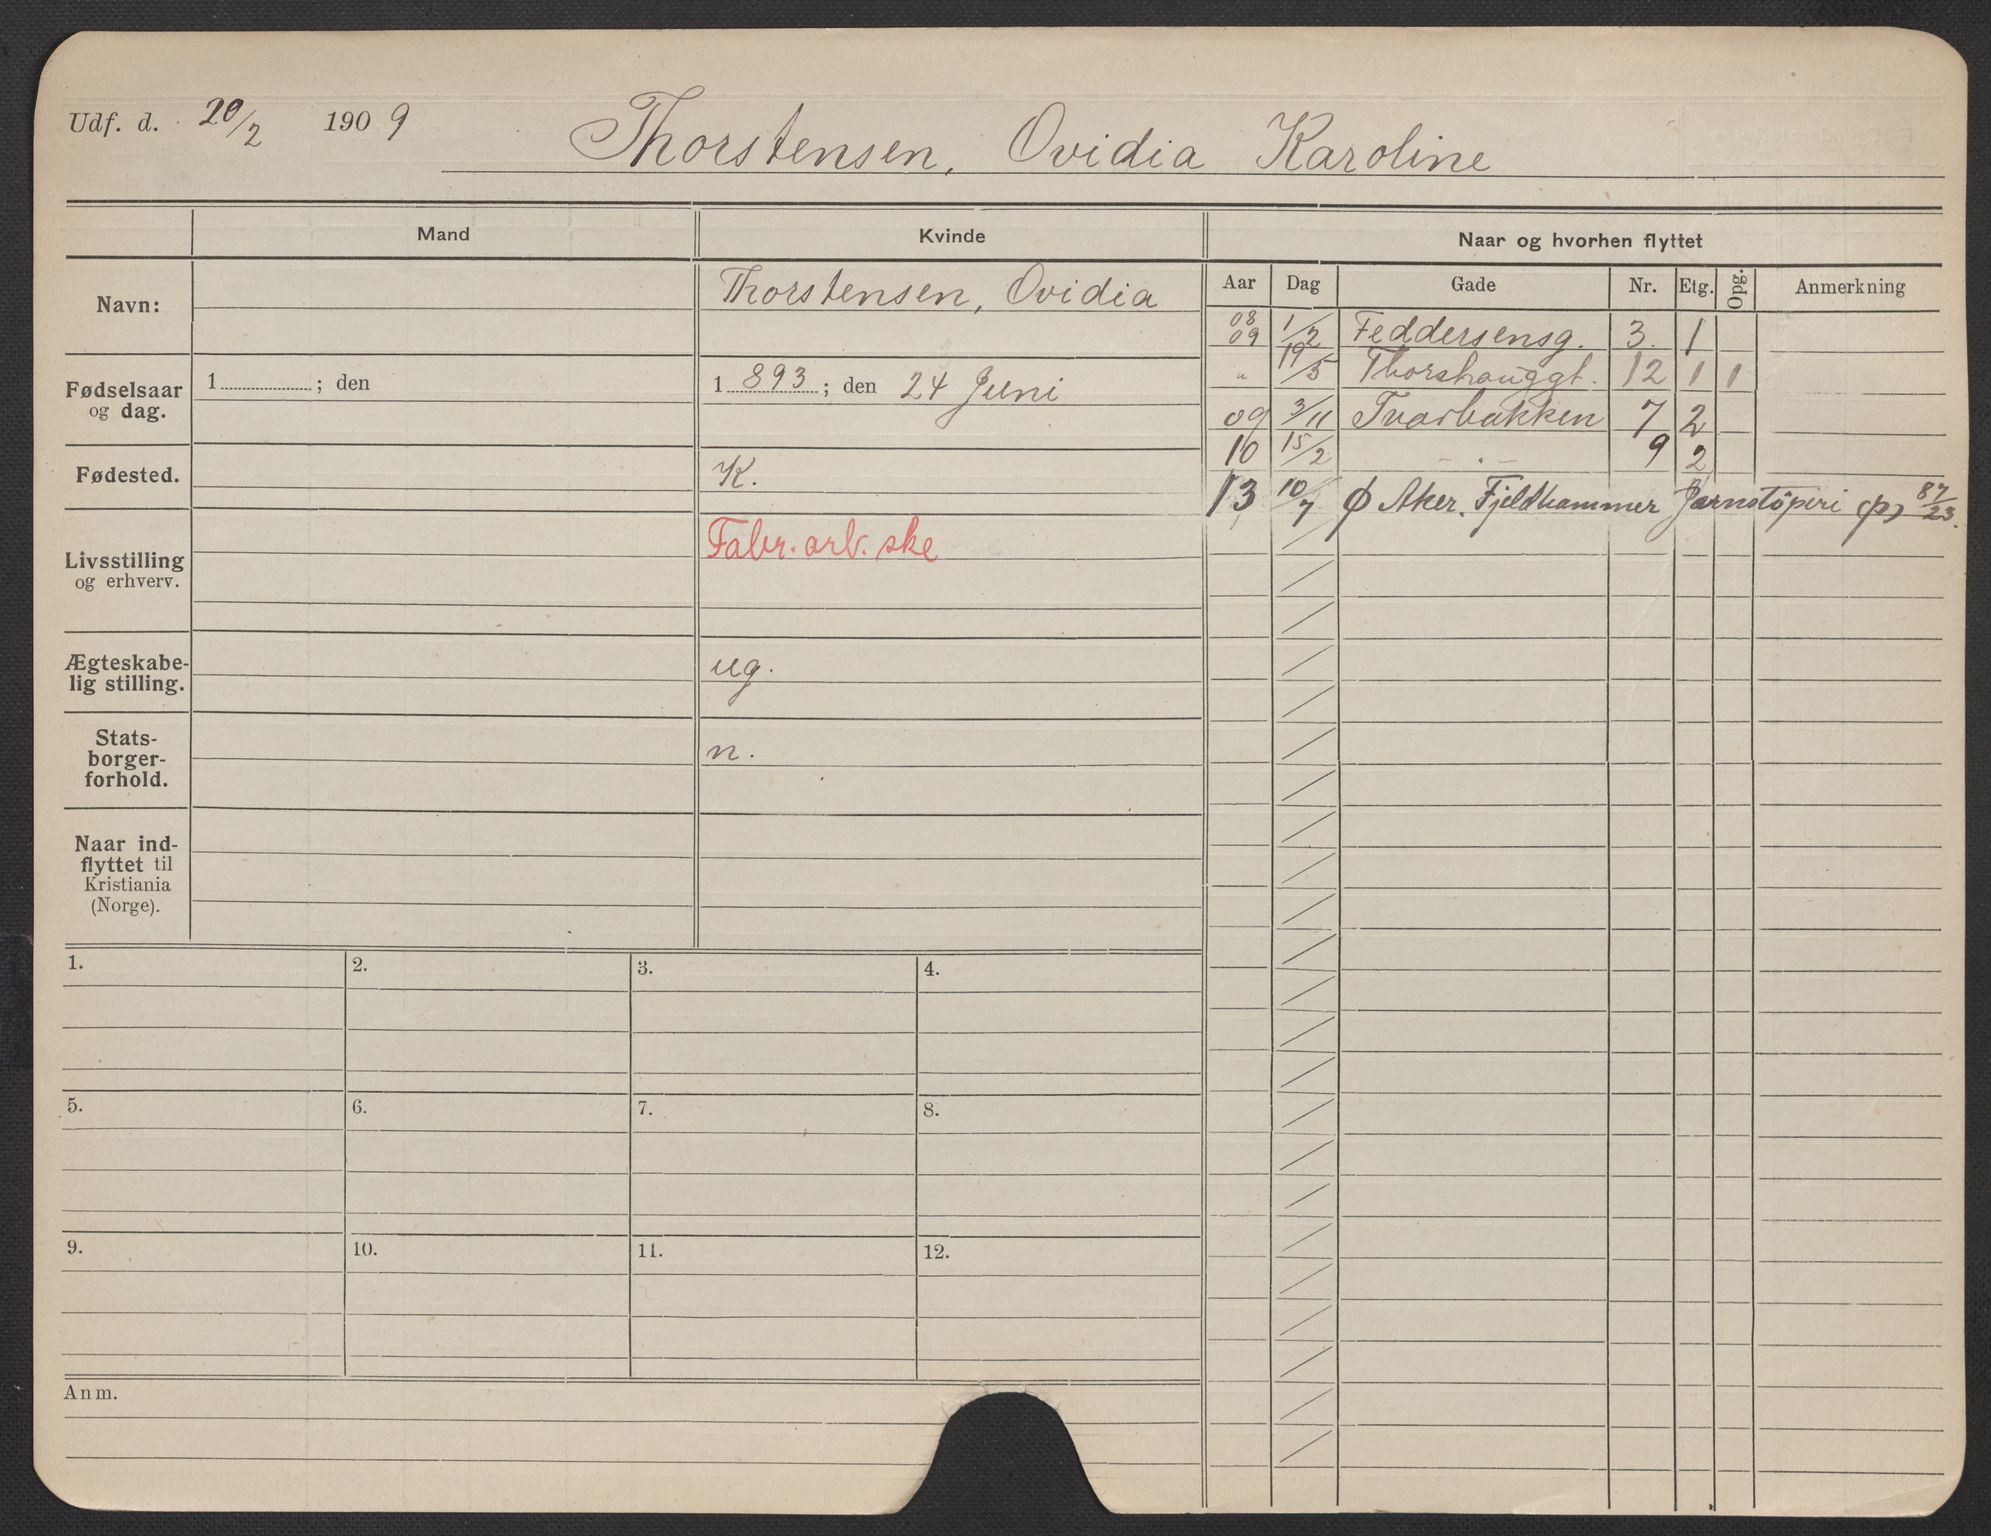 Udf. d. 20/2 1909
Thorstensen, Ovidia Karoline
Mand
Kvinde
Naar og hvorhen flyttet
Navn:
Thorstensen, Ovidia
Fødselsaar og dag.
1 ; den
1 893 ; den 24 Juni
Fødested.
K.
Livsstilling og erhverv.
Fabr. arb. ske
Ægteskabe-
lig stilling.
ug.
Stats-
borger-
forhold.
n.
Naar ind-
flyttet til
Kristiania
(Norge).
Aar Dag Gade Nr. Etg. Opg. Anmerkning
08
09 1/2 Feddersensg. 3. 1
" 19/5 Thorshauggt. 12 1 1
09 3/11 Tvarbakken 7 2
10 15/2 — " — 9 2
13 10/7 Φ Aker. Fjeldhammer 87/23.
1. 2. 3. 4.
5. 6. 7. 8.
9. 10. 11. 12.
Anm.